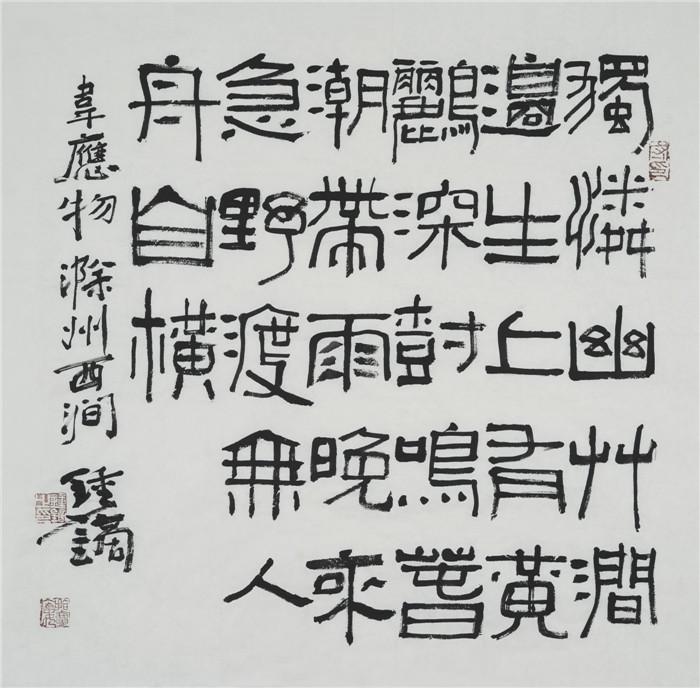 獨憐幽艸澗
邊生上有黃
鸝深尌鳴春
潮帶雨晚來
急野渡無人
舟自橫
韋應物滁州西澗